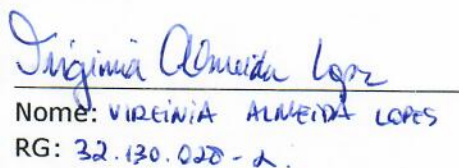 Virginia Almeida Lopes
Nome: VIRGINIA ALMEIDA LOPES
RG: 32.130.020-